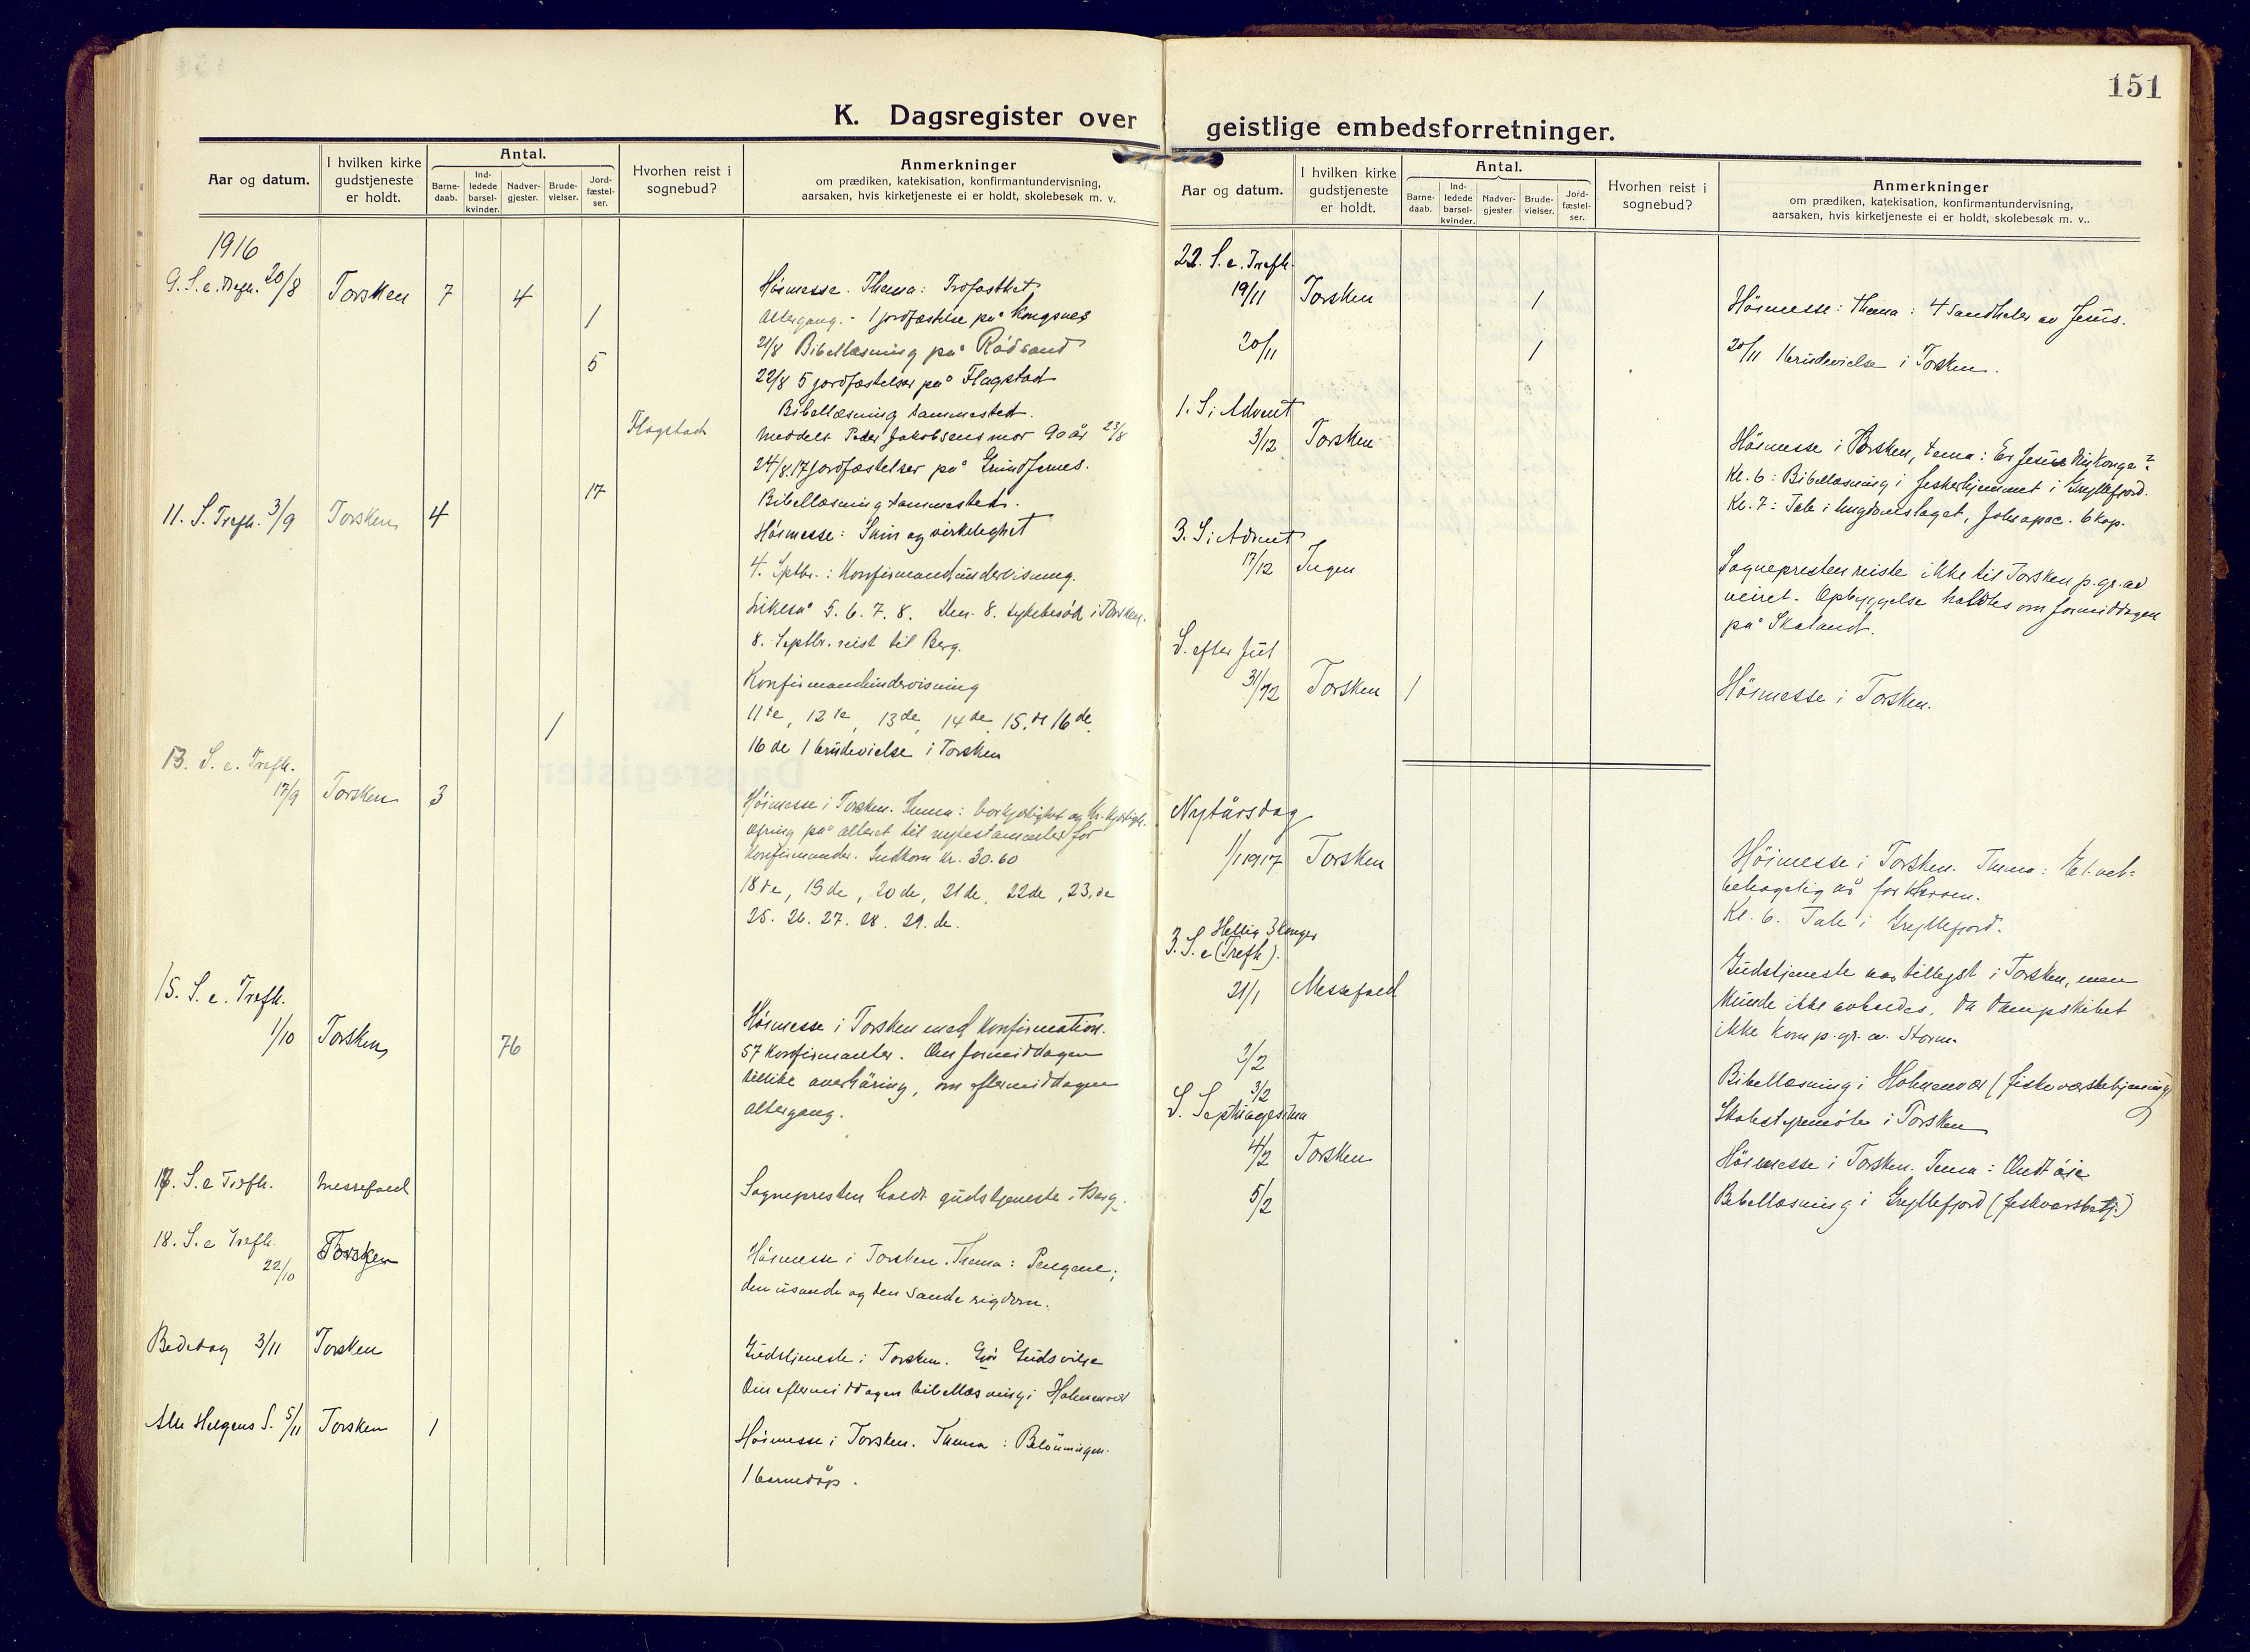 151
K. Dagsregister over geistlige embedsforretninger.
Aar og datum.
I hvilken kirke
gudstjeneste
er holdt.
Antal.
Barne-
daab.
Ind-
ledede
barsel-
kvinder.
Nadver-
gjester.
Brude-
vielser.
Jord-
fæstel-
ser.
Hvorhen reist i
sognebud?
Anmerkninger
om prædiken, katekisation, konfirmantundervisning,
aarsaken, hvis kirketjeneste ei er holdt, skolebesøk m. v.
1916
9. S. e. Trefh. 20/8 Torsken 7 4 Høimesse. Thema: Trofasthet
1 Altergang. - 1 jordfæstelse på Kongsnes
21/8 Bibellæsning på Rödsand
5 22/8 5 jordfæstelser på Flagstad
Bibellæsning sammested.
Flagstad Meddelt Peder Jakobsens mor 90 år 23/8
24/8 17 jordfæstelser på Grundfernes.
17 Bibellæsning sammested.
11. S. Trefh. 3/9 Torsken 4 Høimesse: Skin og virkelighet
4. Sptbr.: Konfirmandundervisning.
Likeså 5. 6. 7. 8. Den 8. sykebesök i Torsken.
8. Septbr. reist til Berg.
Konfirmandundervisning
11te, 12te, 13de, 14de, 15.de 16de.
1 16de 1 brudevielse i Torsken
13. S. e. Trefh.
17/9 Torsken 3 Höimesse i Torsken. Thema:
Ofring på alteret til nytestamenter for
Konfirmander. Indkom kr. 30.60
18de, 19de, 20de, 21de, 22de, 23.de
25. 26. 27. 28. 29. de.
15. S. e. Trefh.
1/10 Torsken 76 Høimesse i Torsken med Konfirmation.
57 Konfirmanter. Om formiddagen
overhöring, om eftermiddagen
altergang.
17. S. e Trefh. Messefald Sognepresten holdt gudstjeneste i Berg.
18. S. e Trefh.
22/10 Torsken Høimesse i Torsken. Thema: Pengene;
den usande og den sande rigdom.
Bededag 3/11 Torsken Gudstjeneste i Torsken. Gjör Guds vilje
Om eftermiddagen bibellæsning i Holmenvær
Alle Helgens S. 5/11 Torsken 1 Høimesse i Torsken. Thema: Belönningen.
1 barnedåp.
Aar og datum.
I hvilken kirke
gudstjeneste
er holdt.
Antal.
Barne-
daab.
Ind-
ledede
barsel-
kvinder.
Nadver-
gjester.
Brude-
vielser.
Jord-
fæstel-
ser.
Hvorhen reist i
sognebud?
Anmerkninger
om prædiken, katekisation, konfirmantundervisning,
aarsaken, hvis kirketjeneste ei er holdt, skolebesøk m. v..
22. S. e. Trefh.
19/11 Torsken 1 Høimesse: Thema: 4 sandheter av Jesus.
20/11 1 20/11 1 brudevielse i Torsken.
1. S. i Advent
3/12 Torsken Høimesse i Torsken, tema: Er Jesus din Konge?
Kl. 6: Bibellæsning i fiskerhjemmet i Gryllefjord.
Kl. 7: Tale i ungdomslaget, Joh. apac. 6 kap.
3. S. i Advent
17/12 Ingen Sognepresten reiste ikke til Torsken p. gr. av
veiret. Opbyggelse holdtes om formiddagen
på Skaland.
S. efter Jul
31/12 Torsken 1 Høimesse i Torsken.
Nytårsdag
1/1 1917 Torsken Høimesse i Torsken. Thema: Et vel-
behagelig år for Herren.
Kl. 6. Tale i Gryllefjord.
Hellig 3 Konger
3. S. e (Trefh).
21/1 Messefald Gudstjeneste var tillyst i Torsken, men
kunde ikke avholdes, da dampskibet
ikke kom p. gr. av. Storm.
2/2 Bibellæsning i Holmenvær (fiskeværsbetjening)
3/2 Skolestyremöte i Torsken
S. Septuagesima
4/2 Torsken Høimesse i Torsken. Tema: Ondt öie
5/2 Bibellæsning i Gryllefjord (fiskværsbetj.)